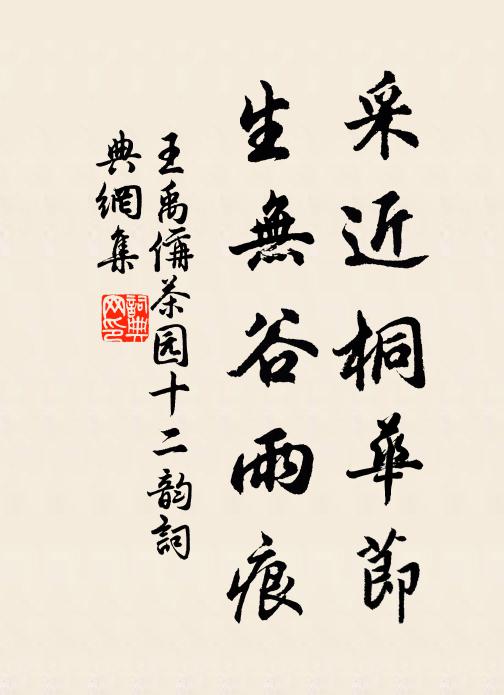 采近桐華節
生無谷雨痕
王禹偁茶园十二韵詞
典網集
詞典
网印